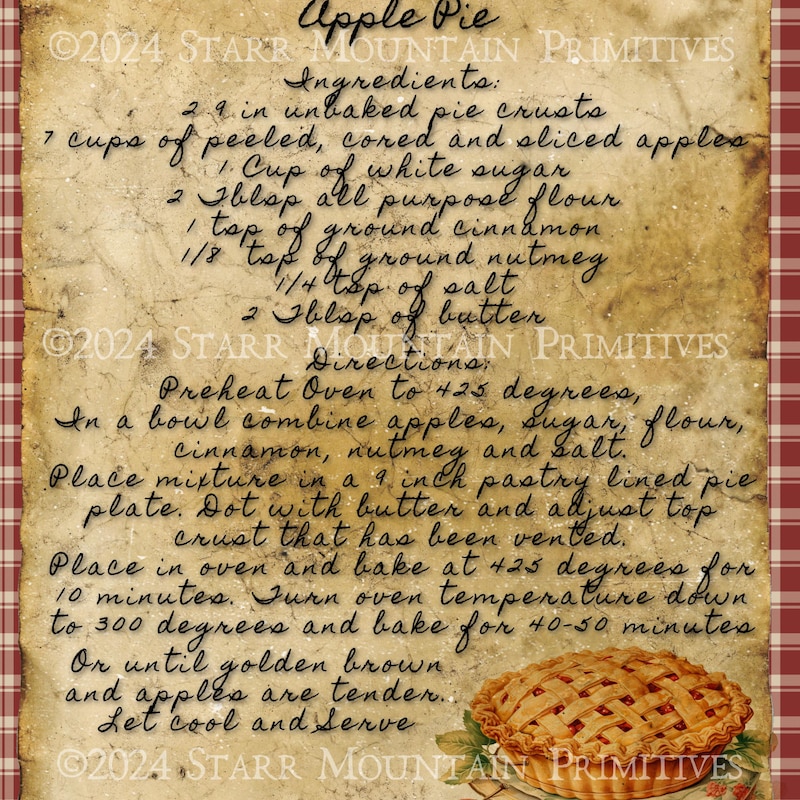 Apple Pie
©2024 Starr Mountain Primitives
Ingredients:
2 9 in unbaked pie crusts
7 cups of peeled, cored and sliced apples
1 Cup of white sugar
2 Tblsp all purpose flour
1 tsp of ground cinnamon
1/8 tsp of ground nutmeg
1/4 tsp of salt
2 Tblsp of butter
©2024 Starr Mountain Primitives
Directions:
Preheat Oven to 425 degrees,
In a bowl combine apples, sugar, flour,
cinnamon, nutmeg and salt.
Place mixture in a 9 inch pastry lined pie
plate. Dot with butter and adjust top
crust that has been vented.
Place in oven and bake at 425 degrees for
10 minutes. Turn oven temperature down
to 300 degrees and bake for 40-50 minutes
Or until golden brown
and apples are tender.
Let cool and Serve
©2024 Starr Mountain Primitives